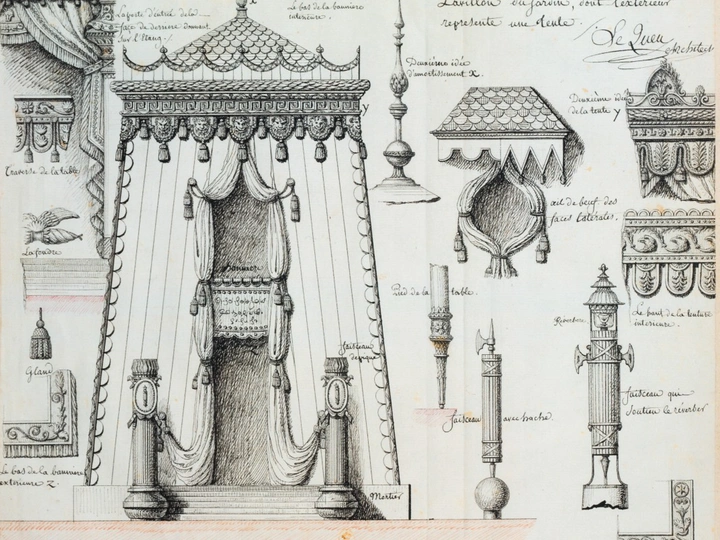 La porte d'entrée de la
face de derriere donnant
sur l'Etang.
x
Le bas de la banniere
interieure.
Pavillon du jardin, dont l'exterieur
represente une Tente.
Le Queu
Architect
Deuxieme idée
d'amortissement X.
Deuxième idée
de la tente y
y
Traverse de la table
œil de beuf des
faces laterales.
La foudre
Banniere
Pied de la table.
Reverbere
Le haut de la tenture
interieure.
Gland
faisceau
de piques
faisceau avec hache.
faisceau qui
soutien le reverber
Le bas de la banniere
exterieure Z.
Mortier